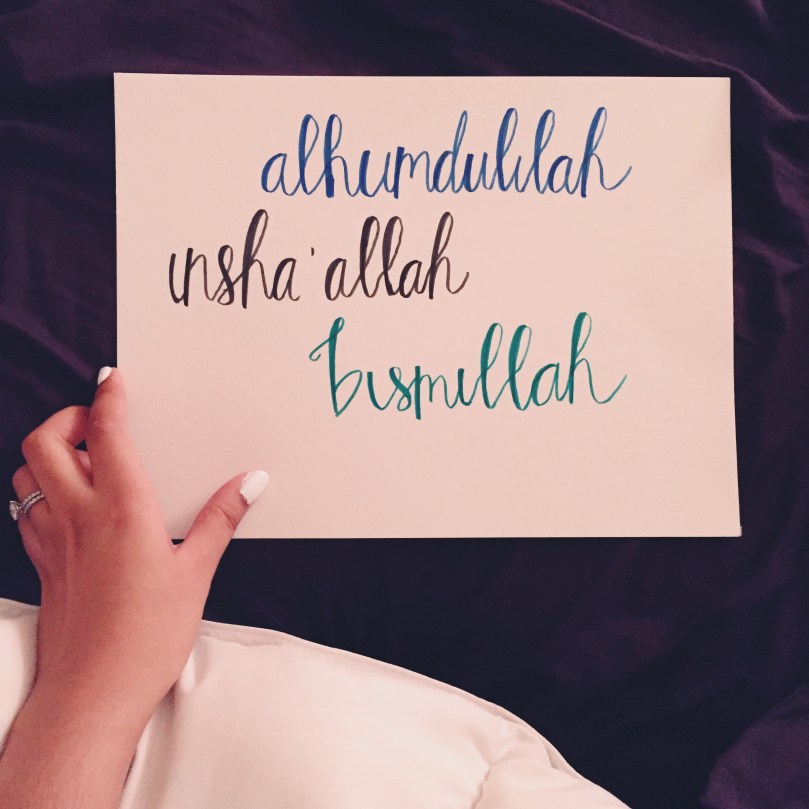 alhumdulilah
insha'allah
bismillah